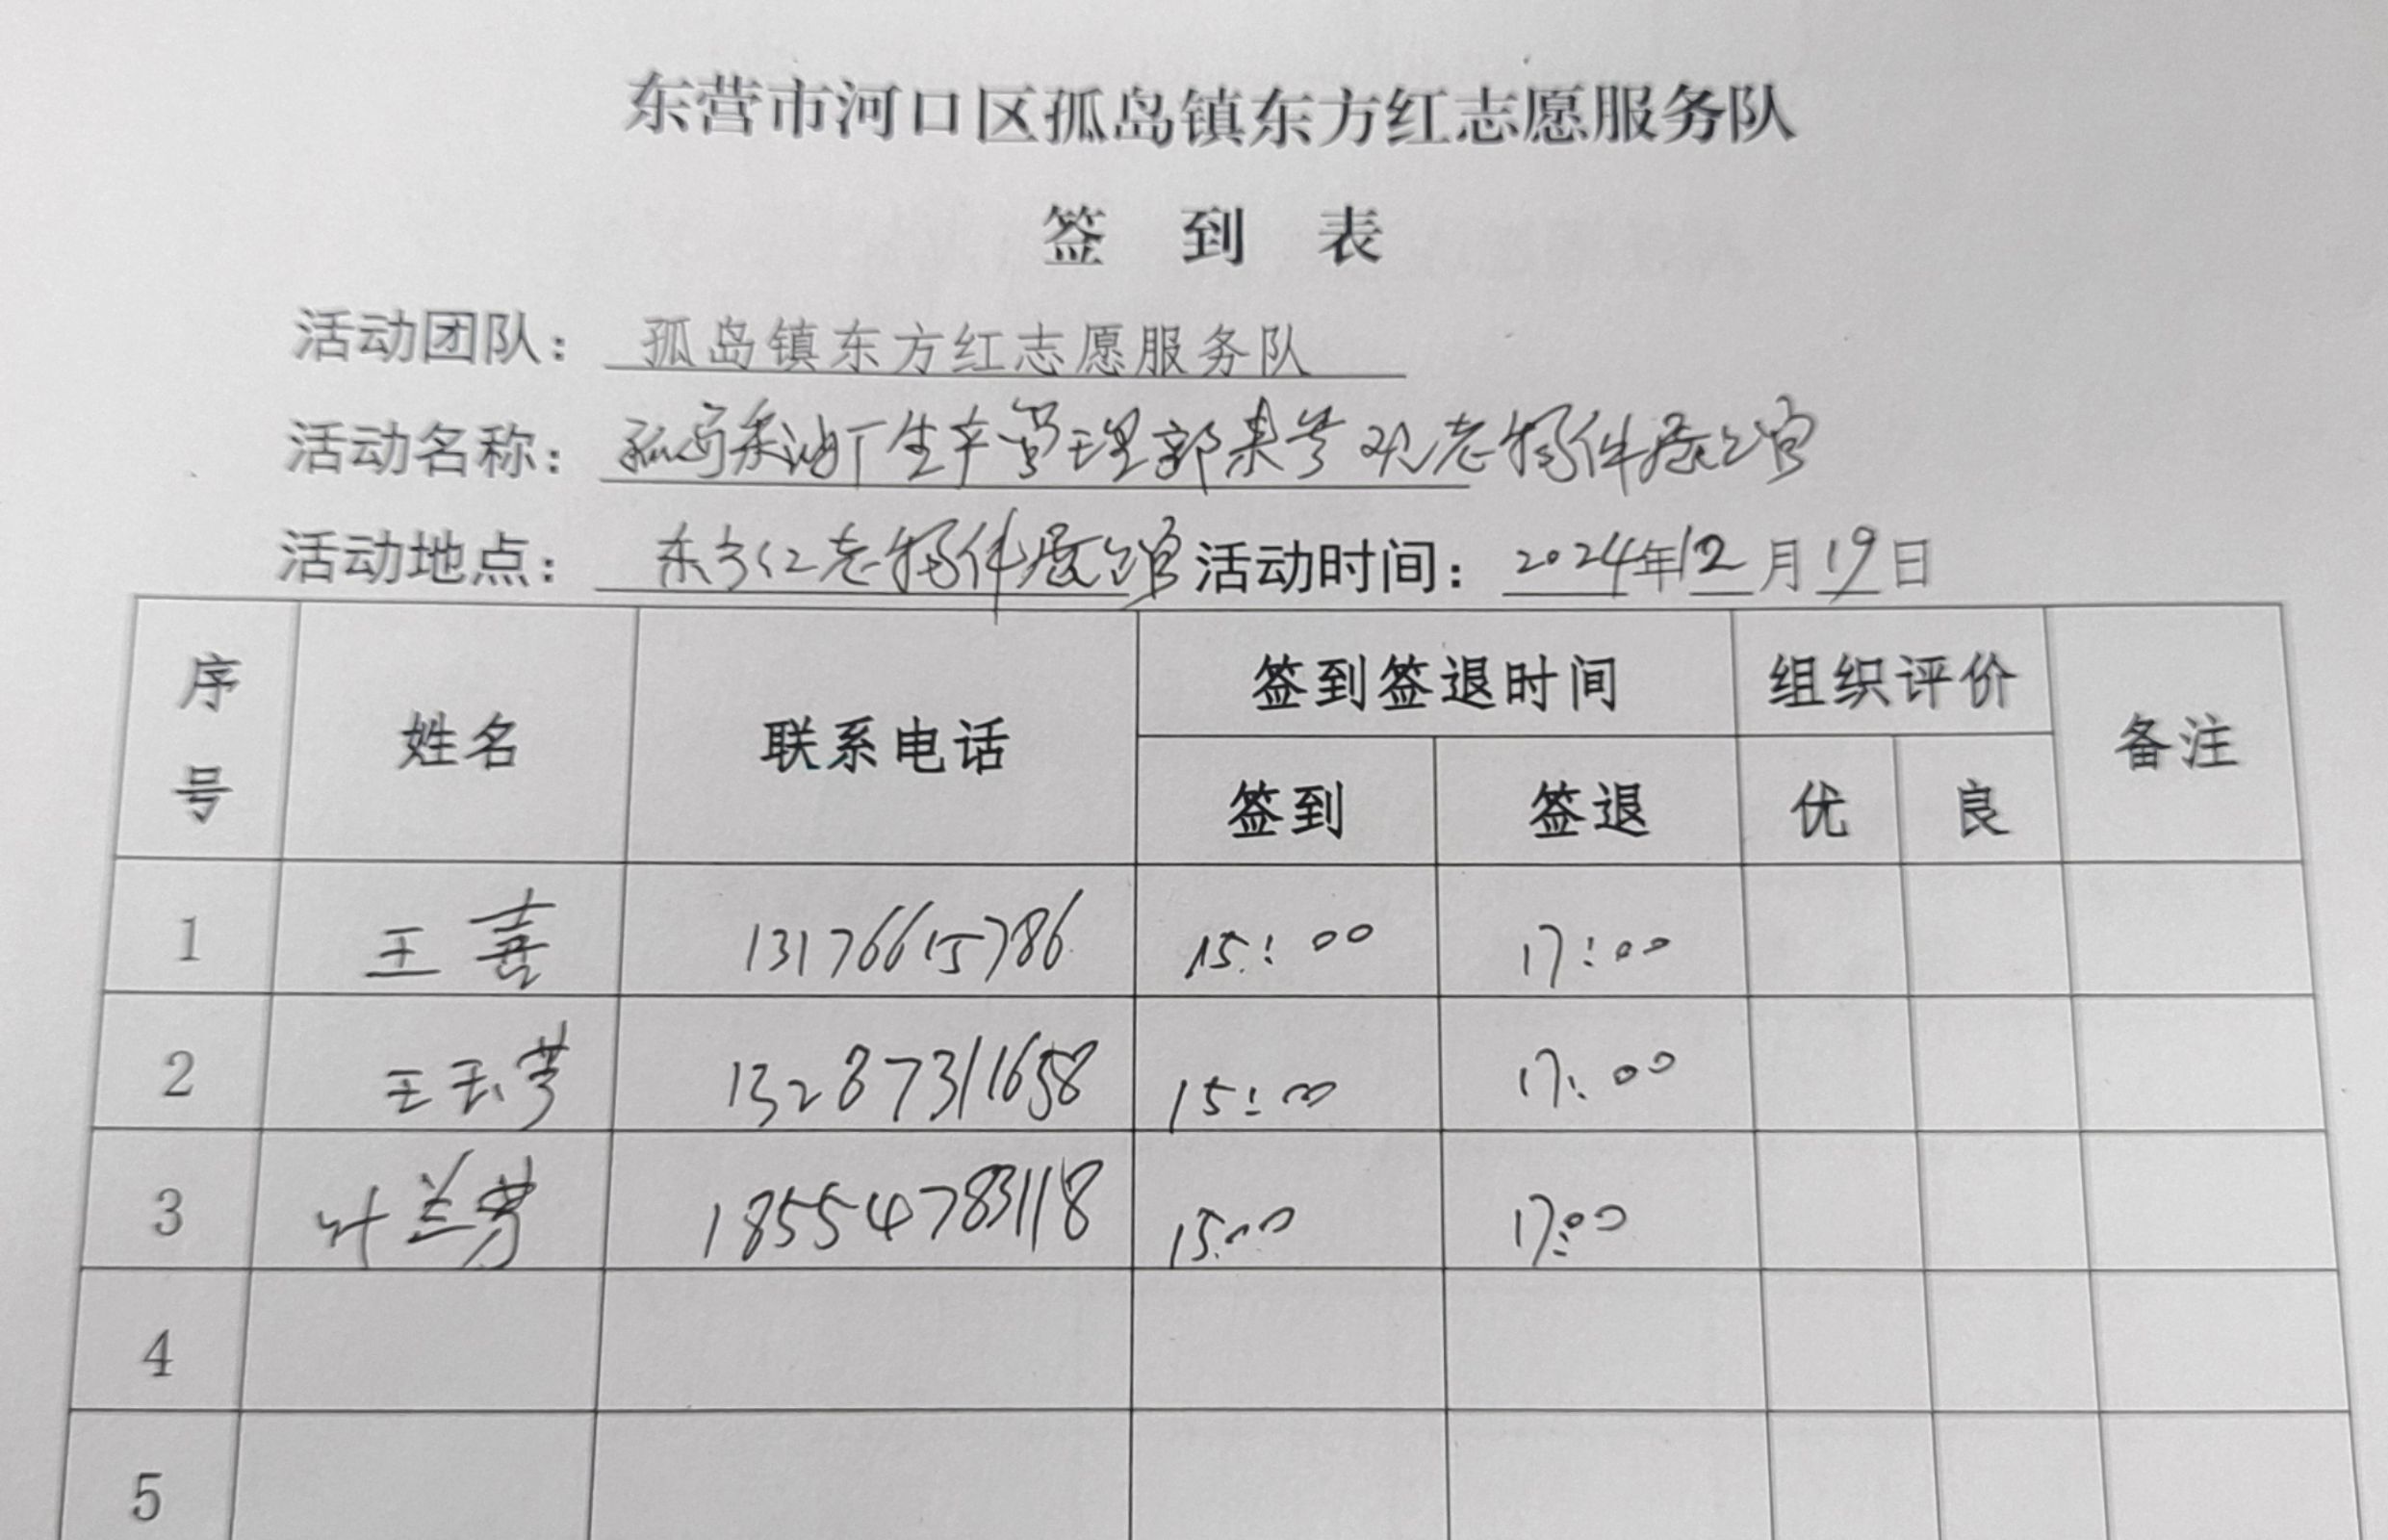 东营市河口区孤岛镇东方红志愿服务队
签 到 表
活动团队: 孤岛镇东方红志愿服务队
活动名称: 孤东采油厂生产管理部来参观老物件展览馆
活动地点: 东方红老物件展览馆 活动时间: 2024年12月19日
序号 姓名 联系电话 签到签退时间 组织评价 备注
签到 签退 优 良
1 王喜 13176615786 15:00 17:00
2 王玉芳 13287311658 15:00 17:00
3 叶兰芳 18554783118 15:00 17:00
4
5